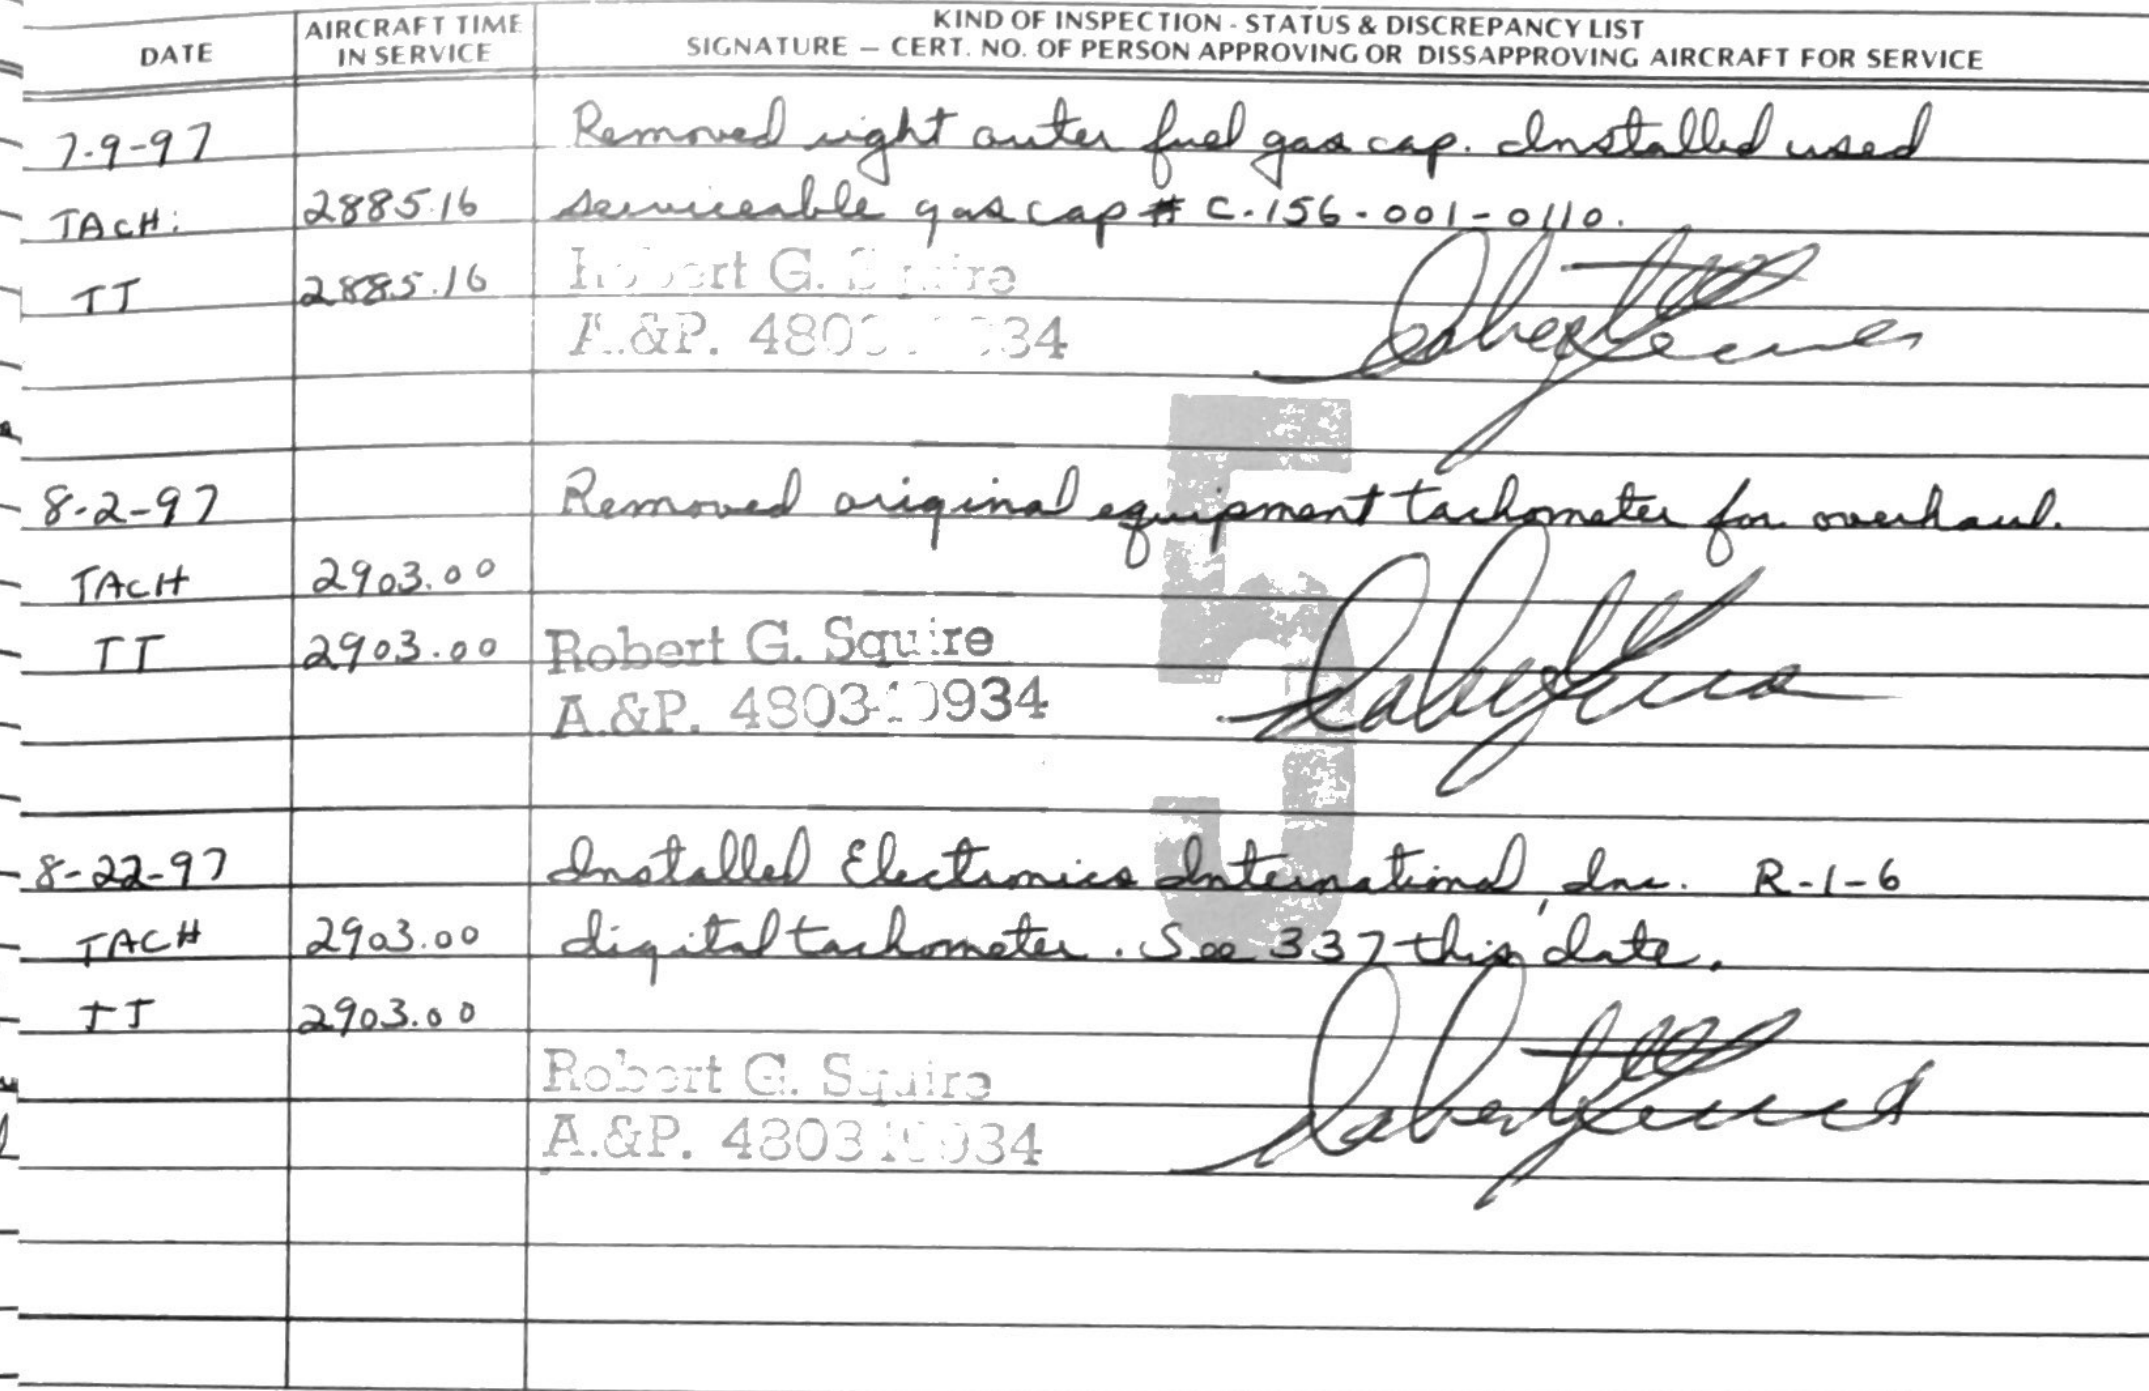 DATE
AIRCRAFT TIME
IN SERVICE
KIND OF INSPECTION - STATUS & DISCREPANCY LIST
SIGNATURE — CERT. NO. OF PERSON APPROVING OR DISSAPPROVING AIRCRAFT FOR SERVICE
7-9-97 Removed right outer fuel gas cap. Installed used
TACH: 2885.16 serviceable gas cap # C-156-001-0110.
TT 2885.16 Robert G. Squire
A.&P.
5
8-2-97 Removed original equipment tachometer for overhaul.
TACH 2903.00
TT 2903.00 Robert G. Squire
A.&P.
8-22-97 Installed Electronics International, Inc. R-1-6
TACH 2903.00 digital tachometer. See 337 this date.
TT 2903.00
Robert G. Squire
A.&P.